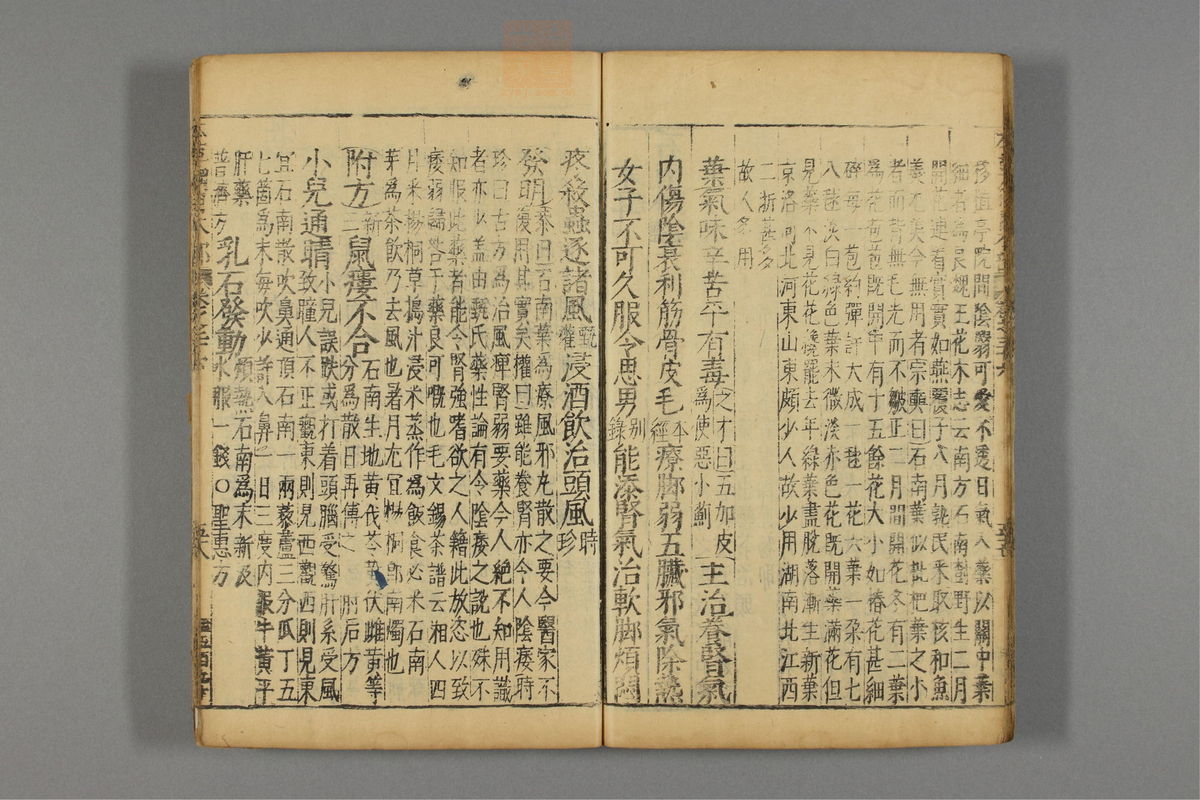 移植亭院間陰翳可愛不透日氣入藥以關中葉
細者爲良魏王花木志云南方石南樹野生二月
開花連着實實如燕覆子八月熟民采取核和魚
羹尤美今無用者宗奭曰石南葉似枇杷葉之小
者而背無毛光而不皺正二月間開花冬有二葉
爲花苞苞既開中有十五餘花大小如椿花甚細
碎每一苞約彈許大成一毬一花六葉一朶有七
八毬淡白綠色葉末微淡赤色花既開蘂滿花但
見蘂不見花花纔罷去年綠葉盡脫落漸生新葉
京洛河北河東山東頗少人故少用湖南北江西
二浙甚多
故人多用
葉氣味辛苦平有毒 之才曰五加皮爲使惡小薊 主治養腎氣
内傷陰衰利筋骨皮毛 本經 療脚弱五臟邪氣除熱
女子不可久服令思男 别錄 能添腎氣治軟脚煩悶
疼殺蟲逐諸風 甄權 浸酒飲治頭風 時珍
發明 恭曰石南葉爲療風邪丸散之要今醫家不
復用其實矣權曰雖能養腎亦令人陰痿時
珍曰古方爲治風痺腎弱要藥今人絶不知用識
者亦少蓋由甄氏藥性論有令陰痿之說也殊不
知服此藥者能令腎強嗜欲之人籍此放恣以致
痿弱歸咎于藥良可嘅也毛文錫茶譜云湘人四
月采楊桐草搗汁浸米蒸作爲飯食必采石南
芽爲茶飲乃去風也暑月尤宜楊桐即南燭也
附方 新三 鼠瘻不合 石南生地黃茯苓黃 伏雌黃等
分爲散日再傅之 肘后方
小兒通睛 小兒誤跌或打着頭腦受驚肝系受風
致瞳人不正觀東則見西觀西則見東
宜石南散吹鼻通頂石南一兩藜蘆三分瓜丁五
七箇爲末每吹少許入鼻一日三度内服牛黃平
肝藥
普濟方 乳石發動 煩熱石南爲末新汲
水服一錢○聖惠方